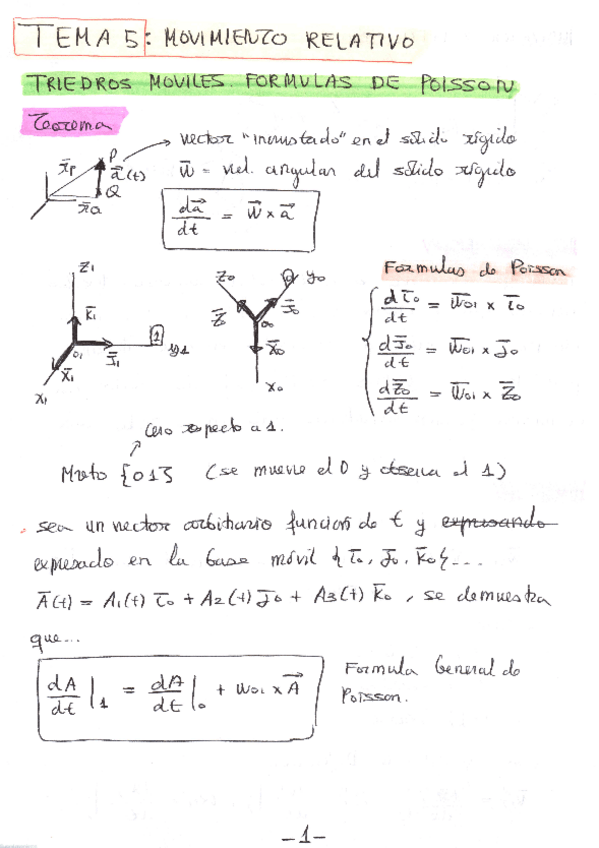 TEMA 5: MOVIMIENTO RELATIVO
TRIEDROS MOVILES. FORMULAS DE POISSON
Teorema
vector "incrustado" en el sólido rígido
x̄p P a⃗(t) Q x̄Q
w̄ = vel. angular del sólido rígido
da⃗/dt = w⃗ x a⃗
Z1 K̄1 O1 J̄1 1 y1 x̄1 x1
Z0 0 y0 Z̄0 J̄0 O0 x̄0 x0
Formulas de Poisson
dī0/dt = w̄01 x ī0
dJ̄0/dt = w̄01 x J̄0
dZ̄0/dt = w̄01 x Z̄0
Cero respecto a 1.
Mvto {01} (se mueve el 0 y observa el 1)
. sea un vector arbitrario función de t y expresando
expresado en la base móvil {ī0, J̄0, K̄0}...
Ā(t) = A1(t) ī0 + A2(t) J̄0 + A3(t) K̄0, se demuestra
que...
dA/dt|1 = dA/dt|0 + w01 x A⃗
Formula General de
Poisson.
-1-